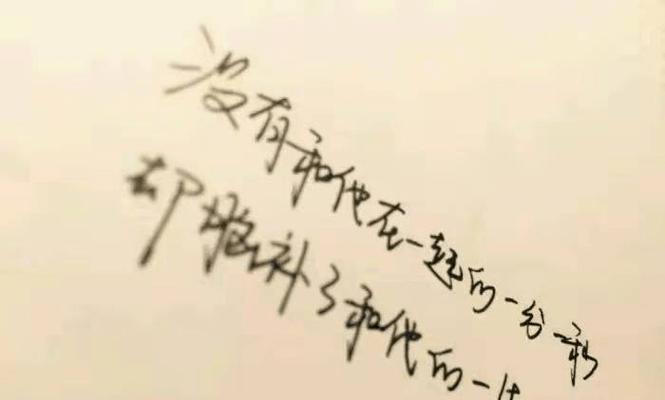 没有和他在一起的一分一秒
却脑补了和他的一